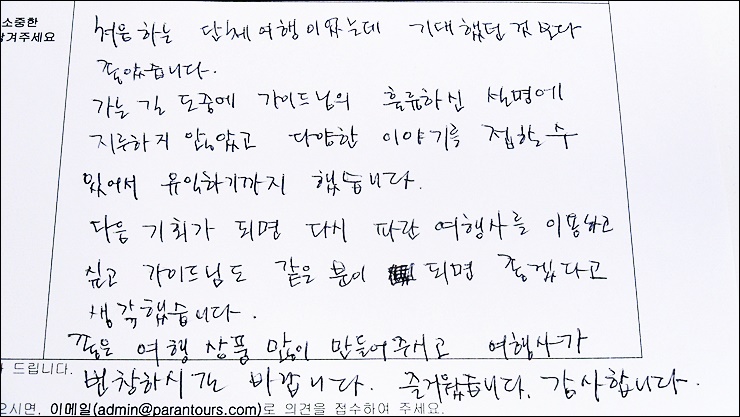 소중한
남겨주세요
처음하는 단체여행이었는데 기대했던것보다
좋았습니다.
가는 길 도중에 가이드님의 훌륭하신 설명에
지루하지 않았고 다양한 이야기를 접할 수
있어서 유익하기까지 했습니다.
다음 기회가 되면 다시 파란 여행사를 이용하고
싶고 가이드님도 같은 분이 되면 좋겠다고
생각했습니다.
좋은 여행 상품 많이 만들어주시고 여행사가
드립니다.
번창하시길 바랍니다. 즐거웠습니다. 감사합니다.
오시면, 이메일(admin@parantours.com)로 의견을 접수하여 주세요.